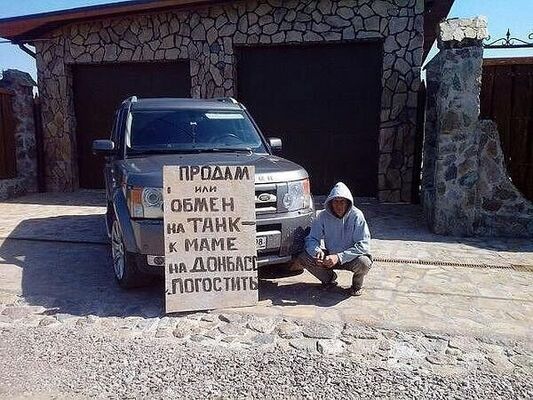 ПРОДАМ
или
ОБМЕН
НА ТАНК
К МАМЕ
НА ДОНБАСС
ПОГОСТИТЬ